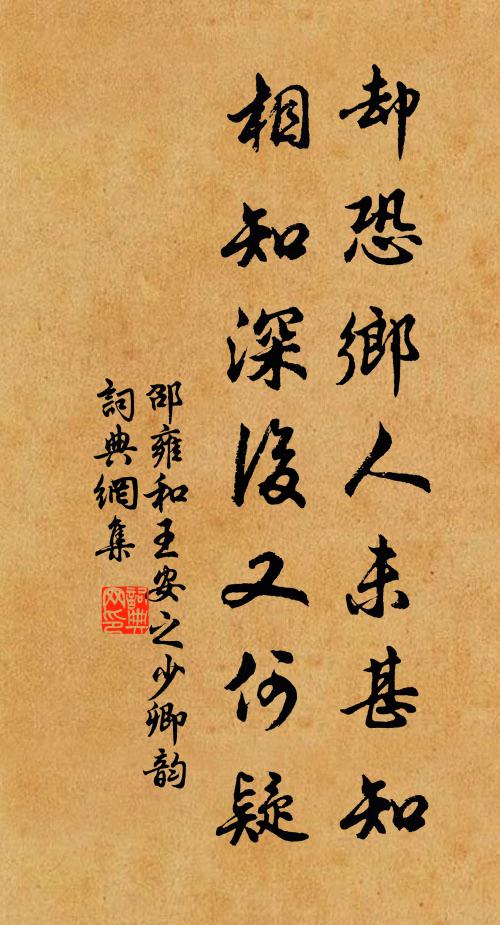 却恐鄉人未甚知
相知深後又何疑
邵雍和王安之少卿韵
詞典網集
詞典網印